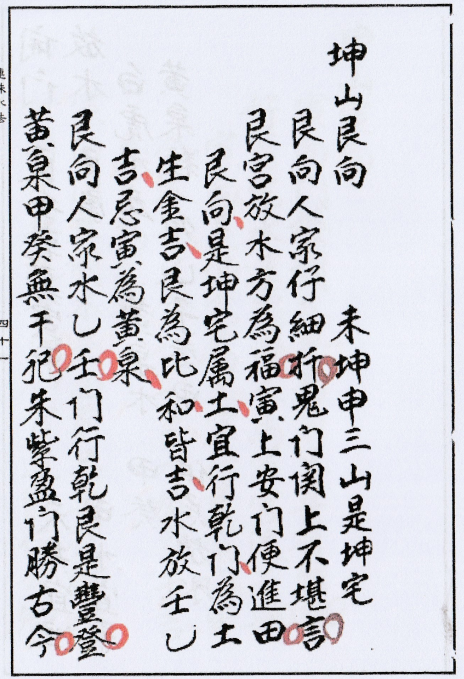 坤山艮向　未坤申三山是坤宅
艮向人家仔細拆鬼门関上不堪言
艮宮放水方為福寅上安门便進田
艮向是坤宅属土宜行乾门為土
生金吉艮為比和皆吉水放壬乚
吉忌寅為黃泉
艮向人家水乚壬门行乾艮是豐登
黃泉甲癸無干犯朱紫盈门勝古今
四十一